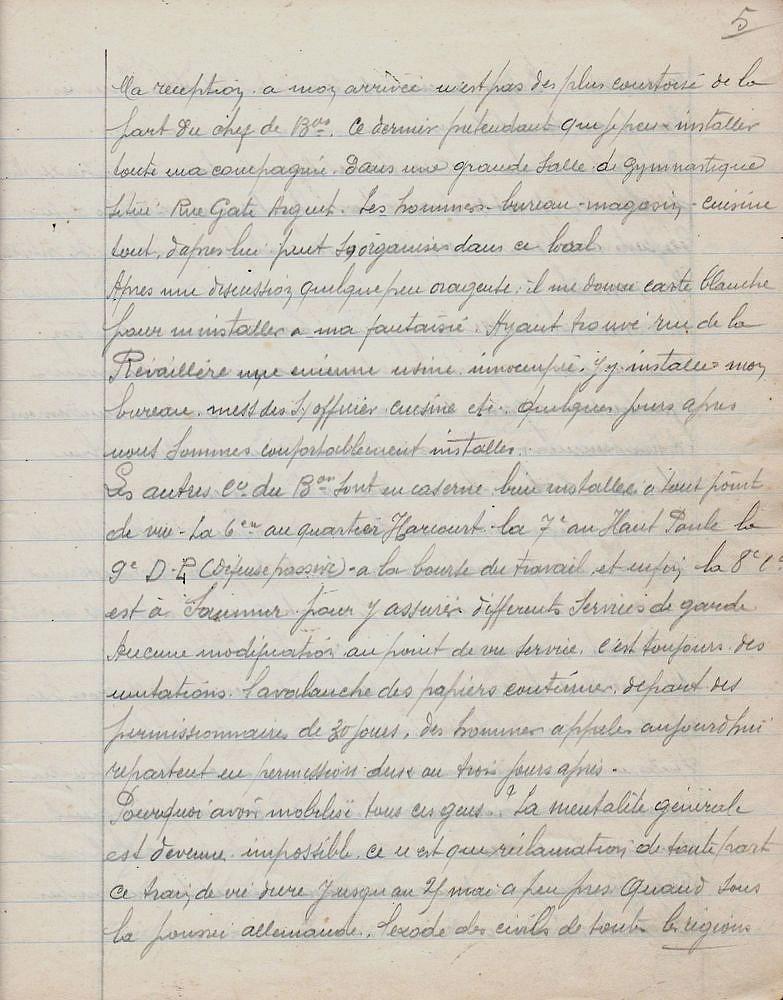 5
Ma reception a mon arrivée n'est pas des plus courtoise de la
part du chef de Bon. Ce dernier pretendant que je peux installer
toute ma compagnie dans une grande Salle de Gymnastique
Situé Rue Gate Argent. Les hommes - bureau - magasin - cuisine
tout, d'apres lui peut s'organiser dans ce local
Apres une discussion quelque peu orageuse, il me donne carte blanche
pour m'installer a ma fantaisie. Ayant trouvé rue de la
Révaillère une encienne usine innocupée, j'y installe mon
bureau, mess des S/officier cuisine etc. quelques jours apres
nous sommes confortablement installés.
Les autres Cies du Bon sont en caserne bien installées a tout point
de vue - La 6em au quartier Harcourt - la 7e au Haut Poule la
9e D-P (Défense passive) - a la bourse du travail et enfin la 8e Cie
est à Saumur pour y assurer differents Services de garde
Aucune modification au point de vue service, c'est toujours des
mutations. l'avalanche des papiers continue, depart des
permissionnaires de 30 jours, des hommes appelés aujourd'hui
repartent en permission deux ou trois jours apres.
Pourquoi avoir mobilisé tous ces gens..? La mentalité générale
est devenue impossible, ce n'est que réclamation de toute part
Ce train de vie dure jusqu'au mai a peu pres Quand sous
la poussée allemande, l'exode des civils de toute les régions